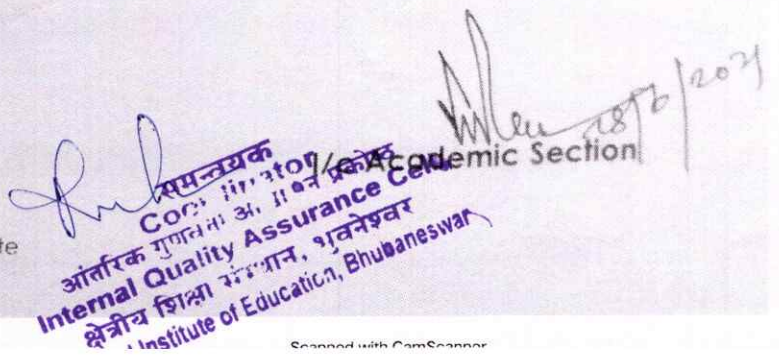 28/6/2021
I/c Academic Section
समन्वयक
Coordinator
आंतरिक गुणवत्ता प्रकोष्ठ
Internal Quality Assurance Cell
क्षेत्रीय शिक्षा संस्थान, भुवनेश्वर
Institute of Education, Bhubaneswar
te
Scanned with CamScanner